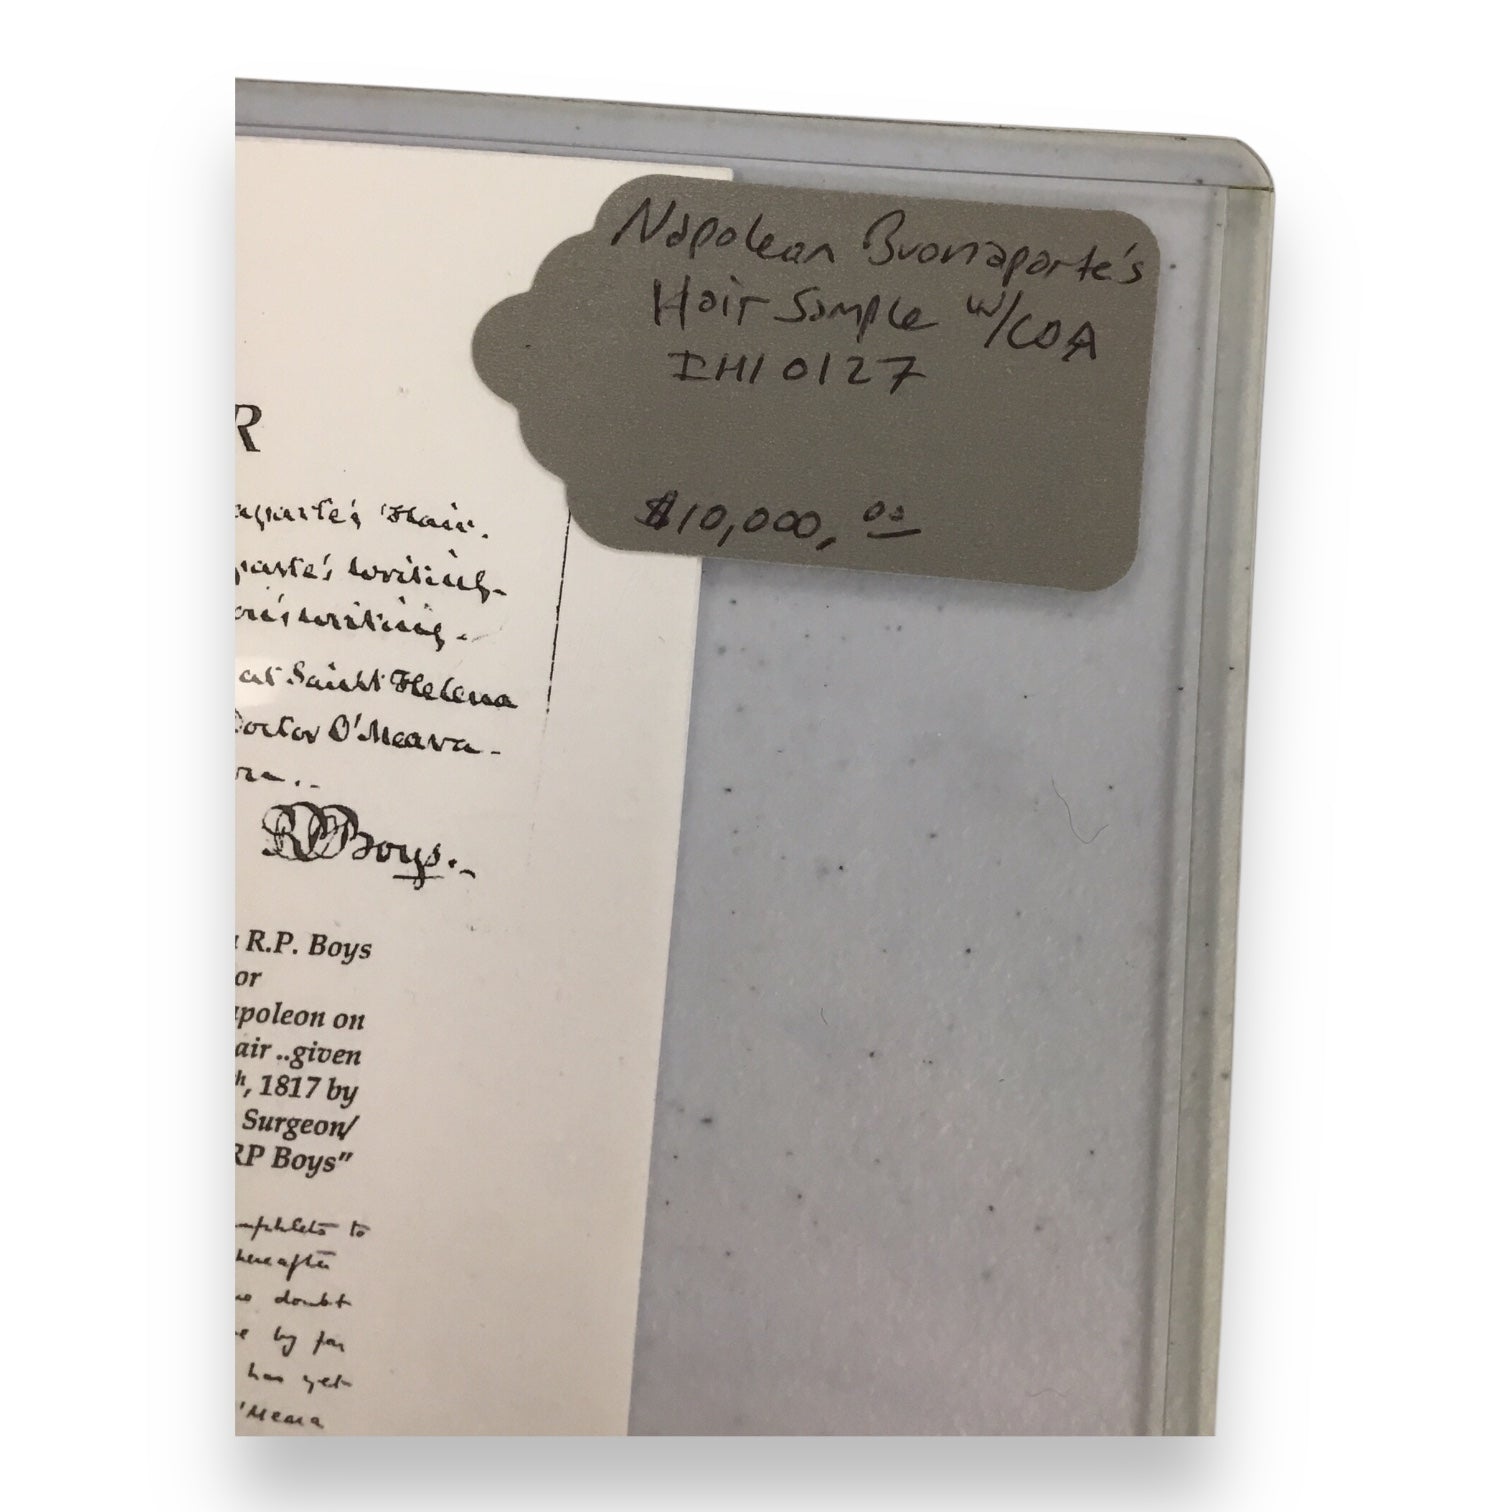 Napolean Buonaparte's
Hair Sample w/COA
IHI 0127
$10,000,00
R
aparte's Hair.
parte's writing-
on's writing-
at Saint Helena
Doctor O'Meara-
RPBoys.
R.P. Boys
or
poleon on
air ..given
h, 1817 by
Surgeon/
RP Boys”
to
hereafter
no doubt
e by far
has yet
O'Meara